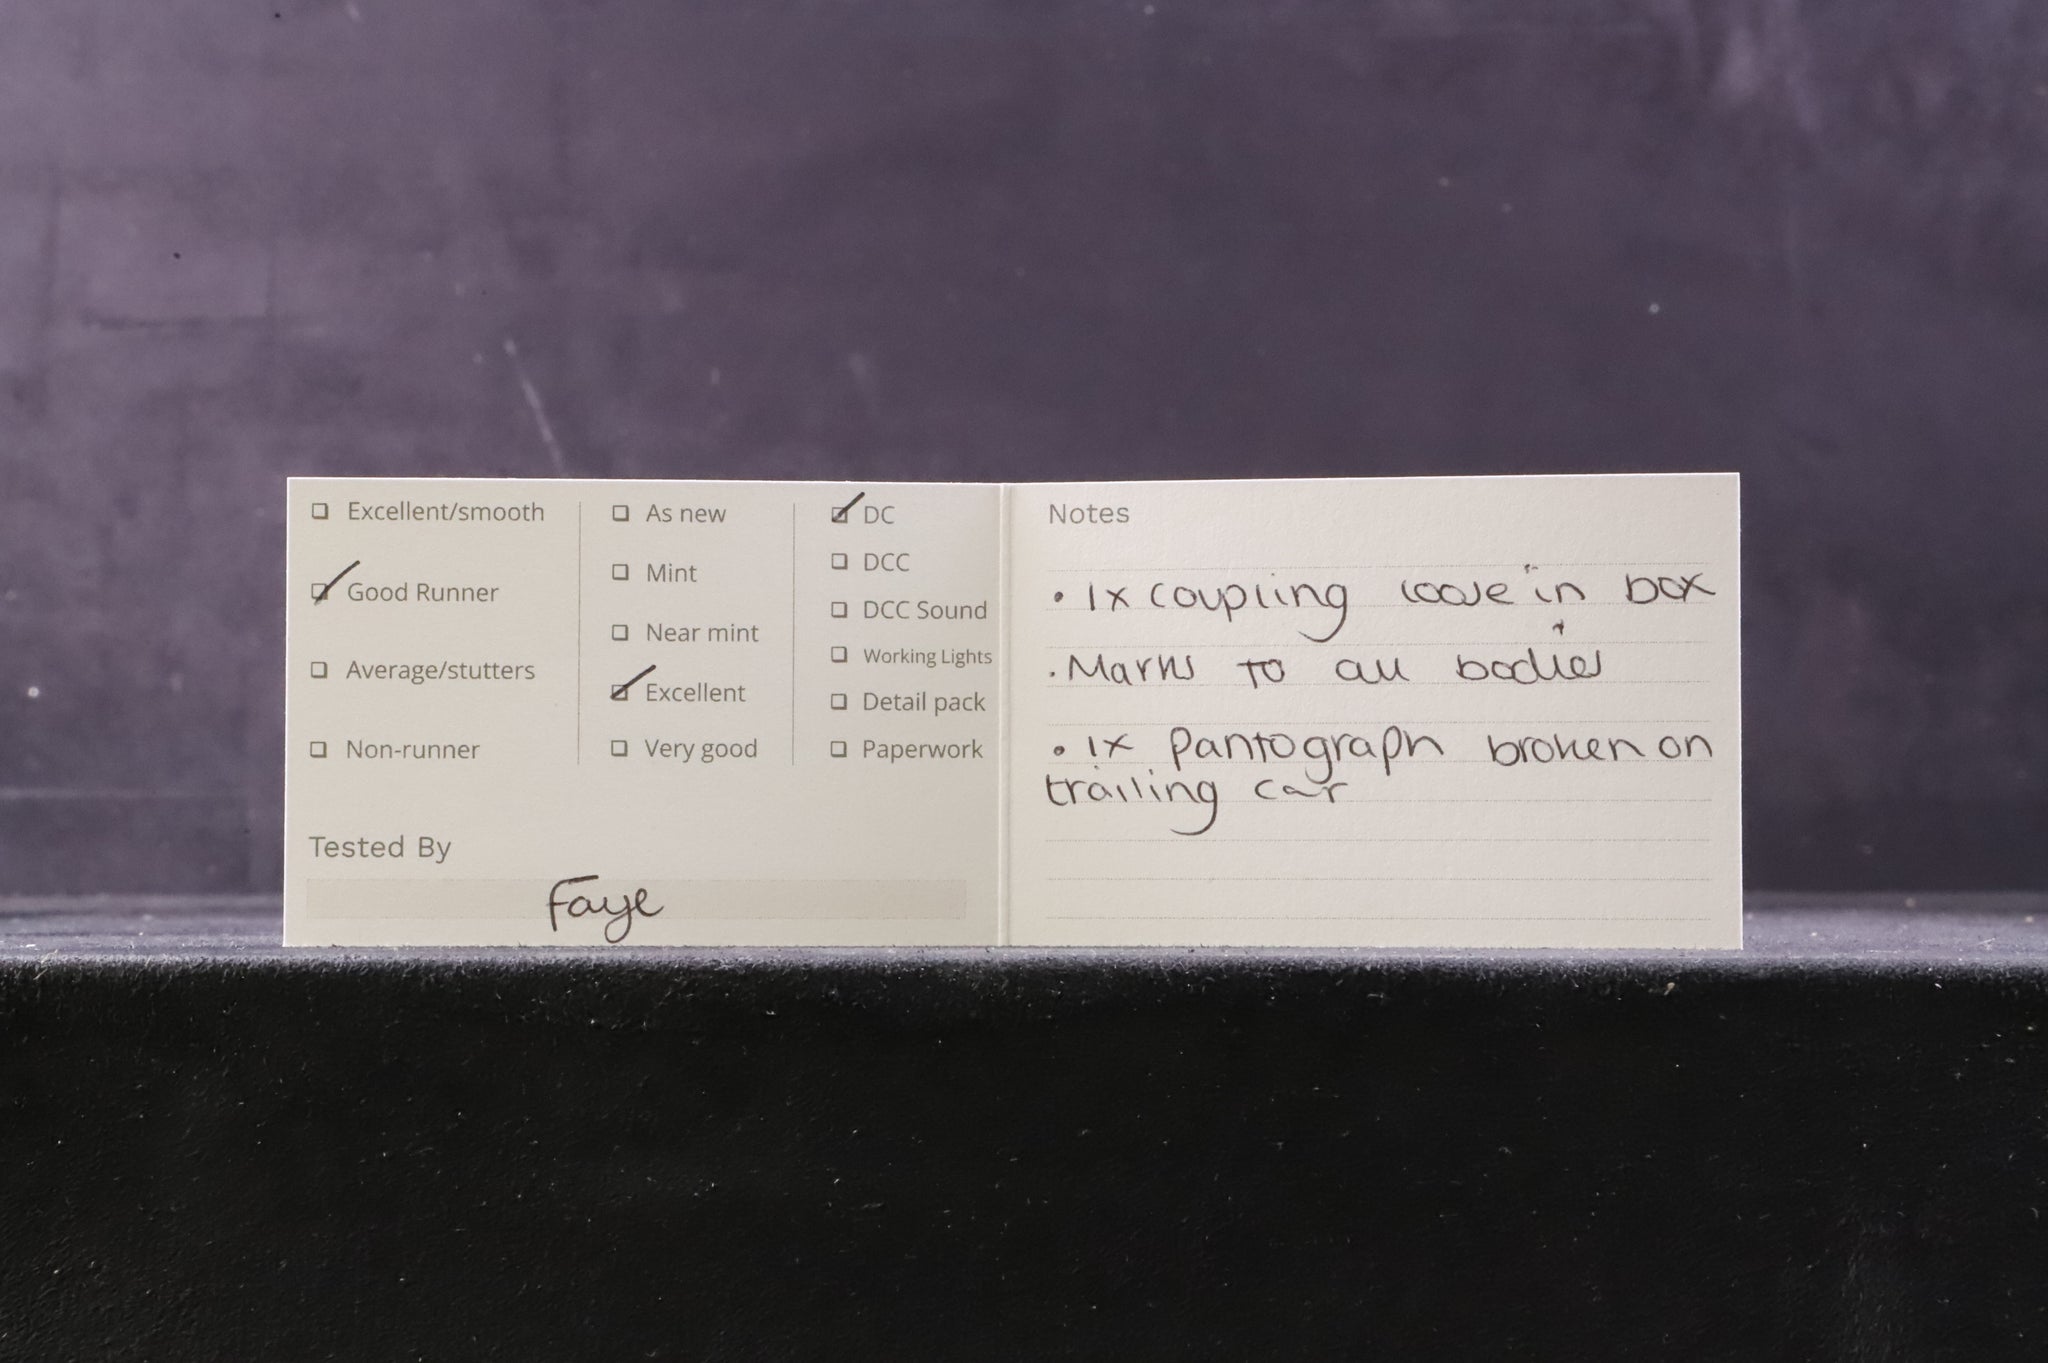 Excellent/smooth
Good Runner
Average/stutters
Non-runner
As new
Mint
Near mint
Excellent
Very good
DC
DCC
DCC Sound
Working Lights
Detail pack
Paperwork
Tested By
Faye
Notes
• 1x coupling loose in box
• Marks to all bodies
• 1x pantograph broken on
trailing car